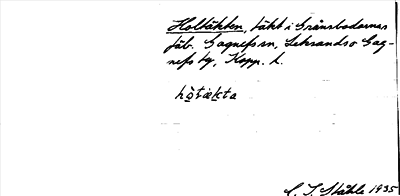 Holtäkten, täkt i Gränsbodarnas
fäb. Gagnefs sn, Leksands o Gag-
nefs tg, Kopp. l.
hòtækta
C. I. Ståhle 1935